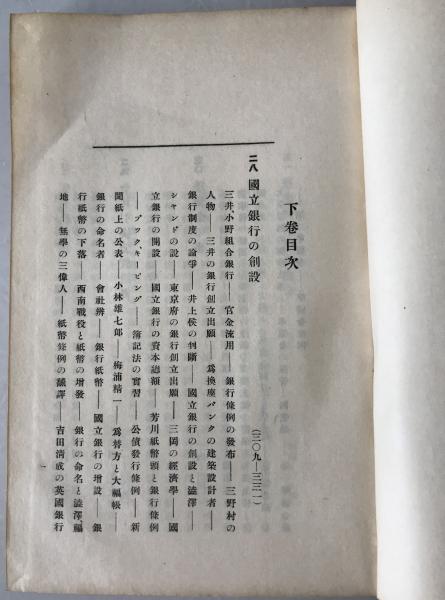 下卷目次
二八 國立銀行の創設
(三〇九―三三一)
三井、小野組合銀行――官金流用――銀行條例の發布――三野村の
人物――三井の銀行創立出願――爲換座バンクの建築設計者――
銀行制度の論爭――井上侯の判斷――國立銀行の創設と澁澤――
シャンドの說――東京府の銀行創立出願――三岡の經濟學――國
立銀行の開設――國立銀行の資本總額――芳川紙幣頭と銀行條例
――ブック、キーピング――簿記法の實習――公債發行條例――新
聞紙上の公表――小林雄七郎 梅浦精一――爲替方と大福帳――
銀行の命名者――會社辨――銀行紙幣――國立銀行の增設――銀
行紙幣の下落――西南戰役と紙幣の增發――銀行の命名と澁澤、福
地――無學の三偉人――紙幣條例の飜譯――吉田淸成の英國銀行
一